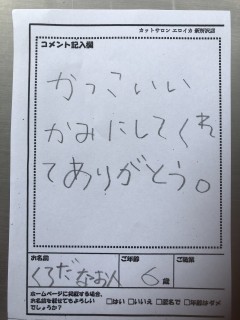 カットサロン エロイカ 前沢店
コメント記入欄
かっこいい
かみにしてくれ
てありがとう。
お名前
ご年齢
ご職業
くろだ なお人
6歳
ホームページに掲載する場合、
お名前を載せてもよろしい
でしょうか?
□はい □いいえ □匿名で □年齢のみ